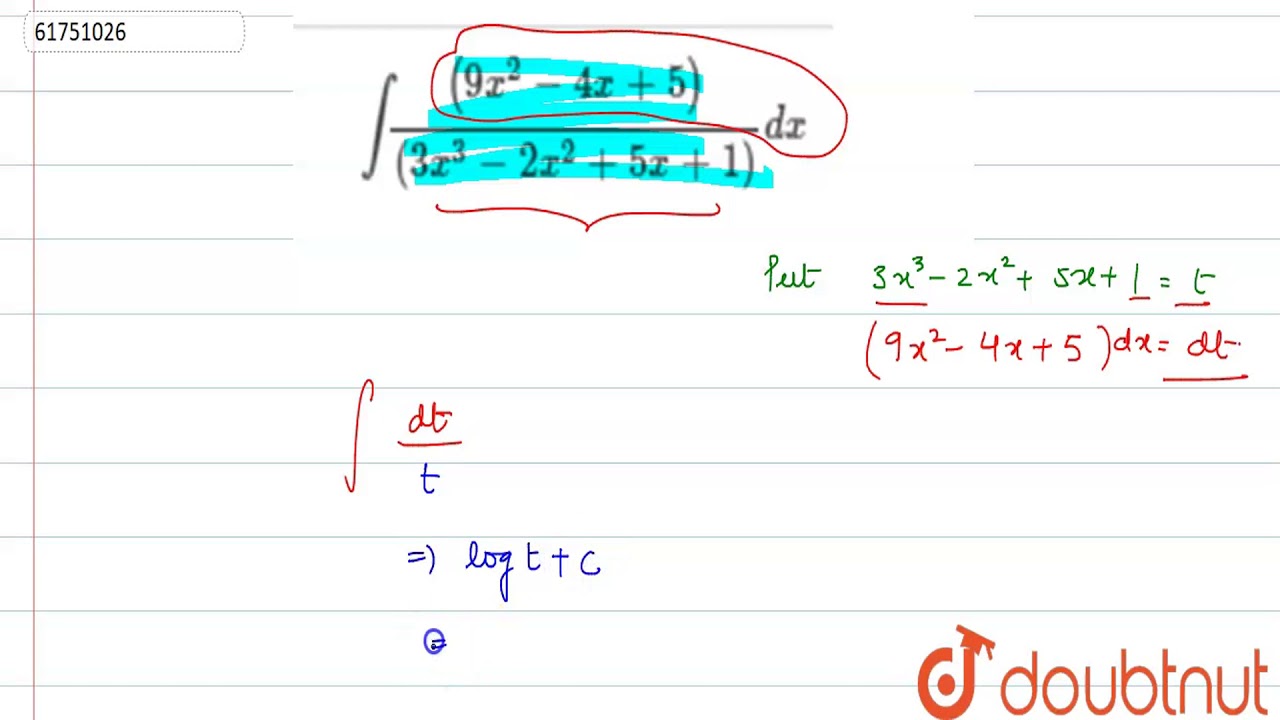 61751026
∫ (9x² − 4x + 5) / (3x³ − 2x² + 5x + 1) dx
Put 3x³ − 2x² + 5x + 1 = t
(9x² − 4x + 5) dx = dt
∫ dt / t
=) log t + c
=
doubtnut